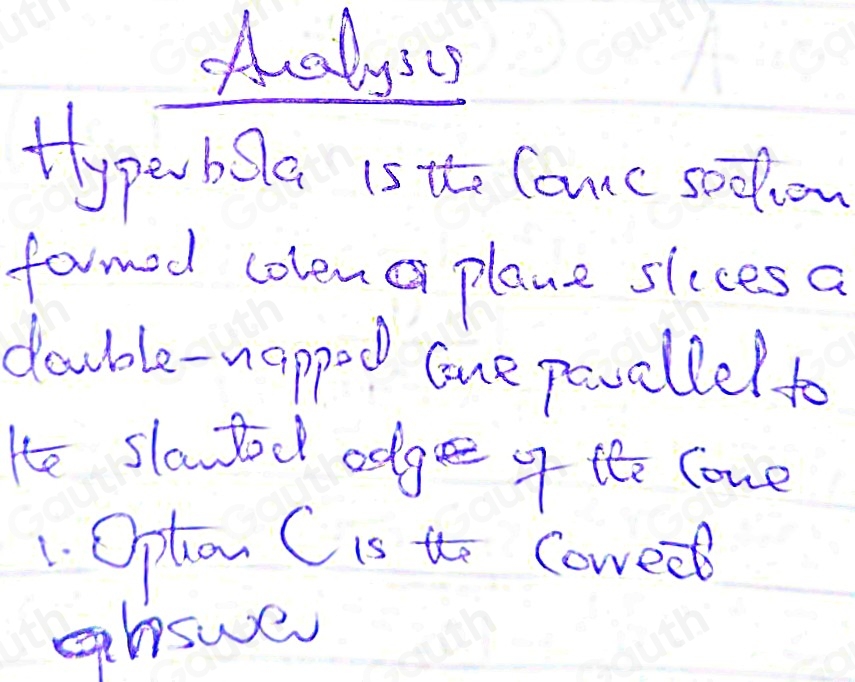 Analysis
Hyperbola is the Conic section
formed when a plane slices a
double-napped Cone parallel to
the slanted edge of the Cone
∴ Option C is the Correct
answer